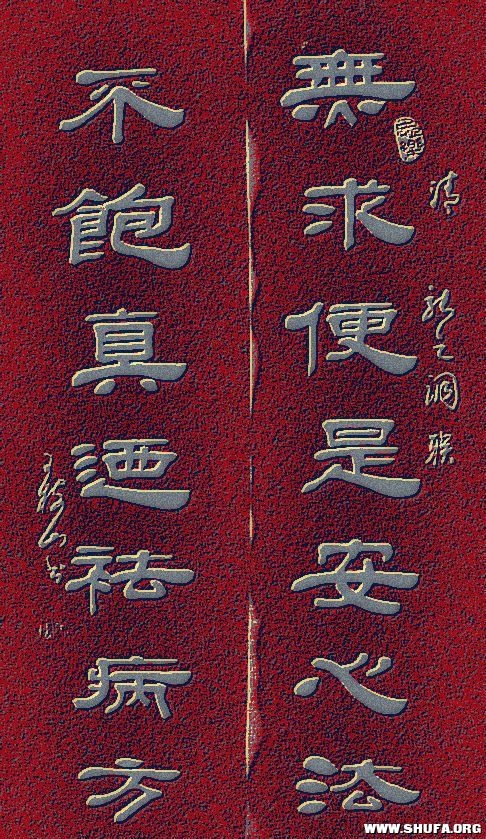 清 張之洞聯
無求便是安心法
不飽真迺祛病方
WWW.SHUFA.ORG